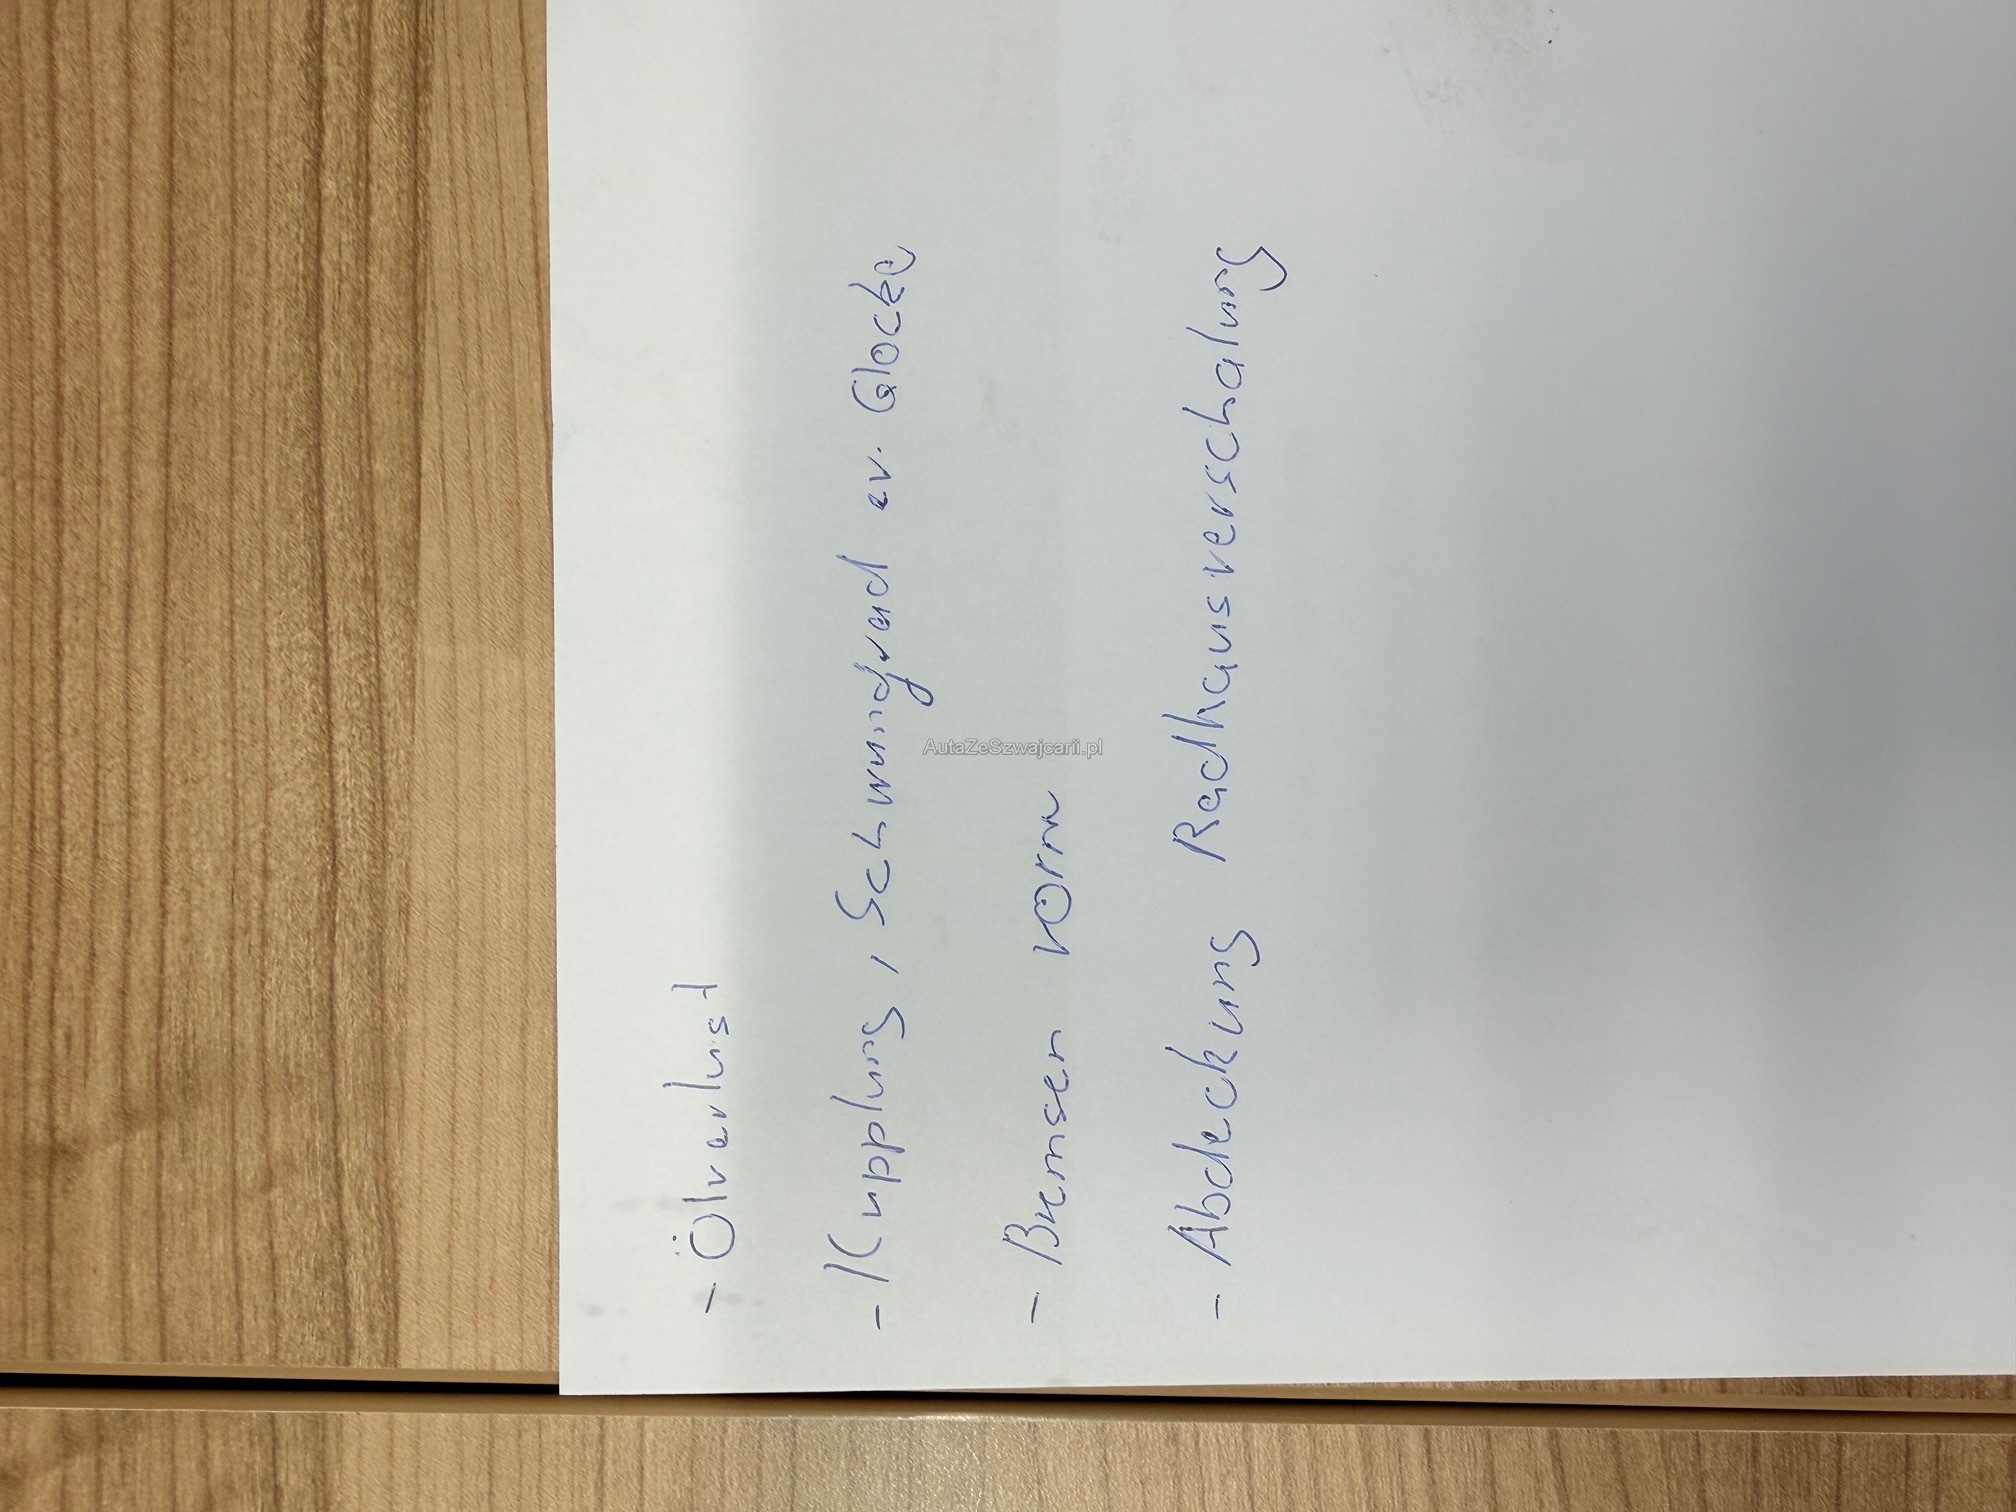 - Ölverlust
- Kupplung, Schwungrad ev. Glocke
- Bremsen vorn
- Abdeckung Radhausverschalung
AutaZeSzwajcarii.pl